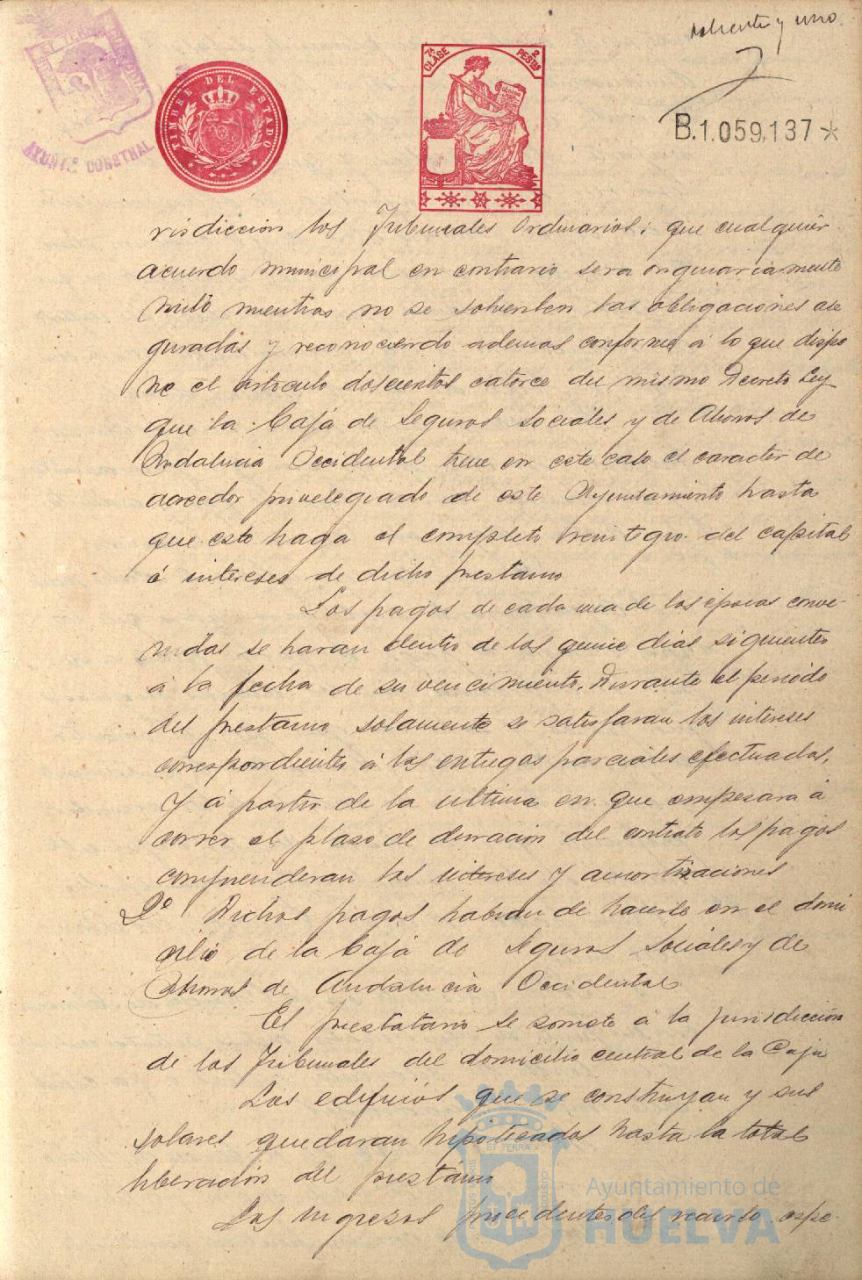 ochenta y uno
TIMBRE DEL ESTADO
7ª CLASE
PESETAS 2
AYUNTº CONSTNAL
B.1.059,137*
risdiccion los Tribunales Ordinarios; que cualquier
acuerdo municipal en contrario sera originariamente
nulo mientras no se solventen las obligaciones ase
guradas y reconociendo ademas conforme á lo que dispo
ne el articulo doscientos catorce del mismo Decreto Ley
que la Caja de Seguros Sociales y de Ahorros de
Andalucia Occidental tiene en este caso el caracter de
acreedor privelegiado de este Ayuntamiento hasta
que este haga el completo reintegro del capital
é intereses de dicho prestamo
Los pagos de cada una de las épocas conve-
nidas se haran dentro de los quince dias siguientes
á la fecha de su vencimiento. Durante el periodo
del prestamo solamente se satisfaran los intereses
correspondientes á las entregas parciales efectuadas,
Y á partir de la ultima en que empesara á
correr el plaso de duracion del contrato los pagos
comprenderan los intereses y amortizaciones
2º Dichos pagos habran de hacerse en el domi
cilio de la Caja de Seguros Sociales y de
Ahorros de Andalucia Occidental
El prestatario se somete á la jurisdiccion
de los Tribunales del domicilio central de la Caja
Los edificios que se construyan y sus
solares quedaran hipotecados hasta la total
liberacion del prestamo
Los ingresos procedentes del recurso espe-
Ayuntamiento de
HUELVA